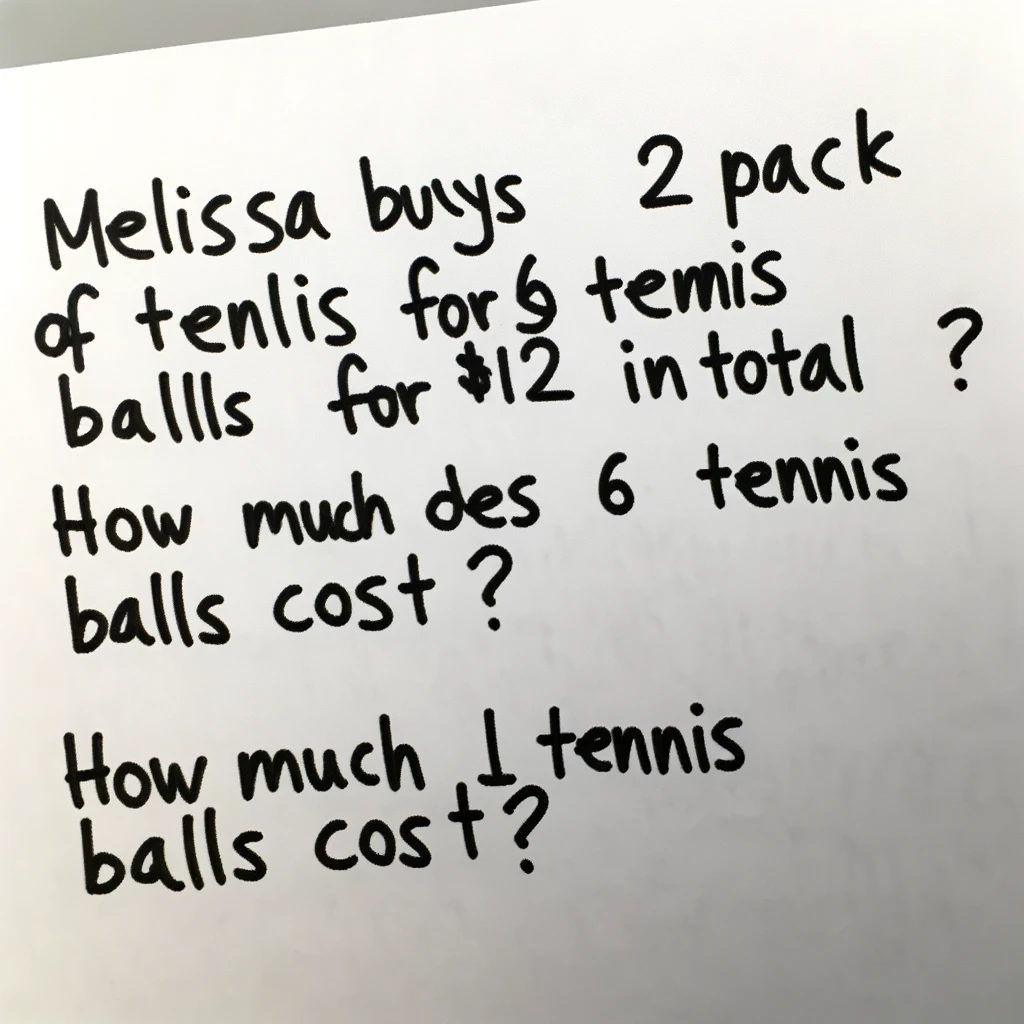 Melissa buys 2 pack
of tenlis for 6 temis
ballls for $12 in total ?
How much des 6 tennis
balls cost ?
How much 1 tennis
balls cost?